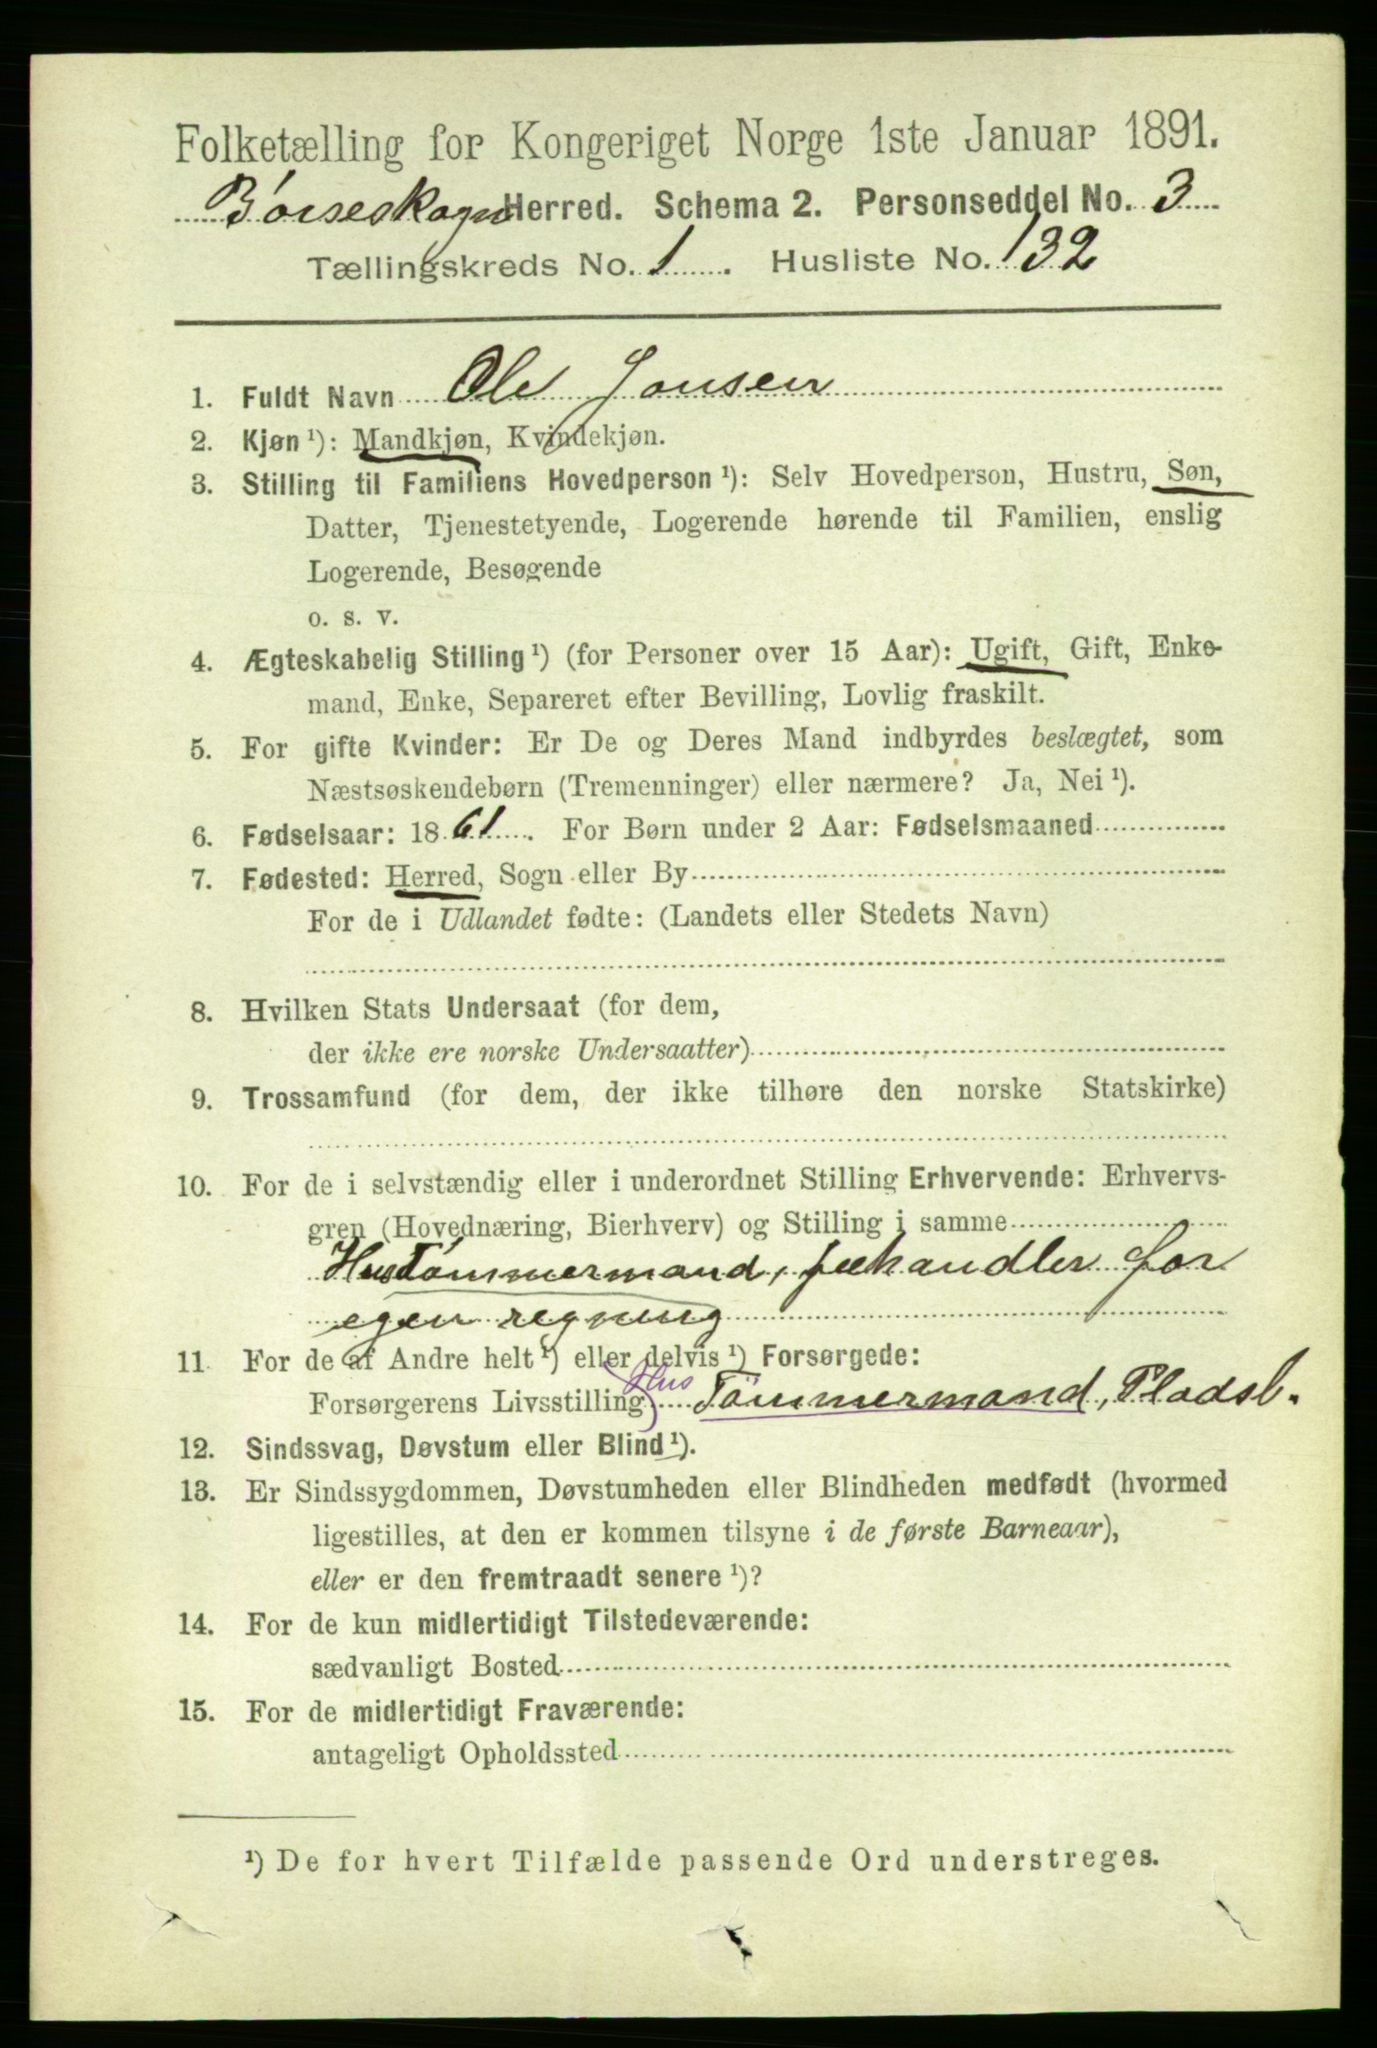 Folketælling for Kongeriget Norge 1ste Januar 1891.
Børseskogn Herred. Schema 2. Personseddel No. 3
Tællingskreds No. 1. Husliste No. 132
1. Fuldt Navn Ole Jonsen
2. Kjøn ¹): Mandkjøn, Kvindekjøn.
3. Stilling til Familiens Hovedperson ¹): Selv Hovedperson, Hustru, Søn,
Datter, Tjenestetyende, Logerende hørende til Familien, enslig
Logerende, Besøgende
o. s. v.
4. Ægteskabelig Stilling ¹) (for Personer over 15 Aar): Ugift, Gift, Enke-
mand, Enke, Separeret efter Bevilling, Lovlig fraskilt.
5. For gifte Kvinder: Er De og Deres Mand indbyrdes beslægtet, som
Næstsøskendebørn (Tremenninger) eller nærmere? Ja, Nei ¹).
6. Fødselsaar: 1861. For Børn under 2 Aar: Fødselsmaaned
7. Fødested: Herred, Sogn eller By
For de i Udlandet fødte: (Landets eller Stedets Navn)
8. Hvilken Stats Undersaat (for dem,
der ikke ere norske Undersaatter)
9. Trossamfund (for dem, der ikke tilhøre den norske Statskirke)
10. For de i selvstændig eller i underordnet Stilling Erhvervende: Erhvervs-
gren (Hovednæring, Bierhverv) og Stilling i samme
HusTømmermand, fæhandler for
egen regning
11 For de af Andre helt ¹) eller delvis ¹) Forsørgede:
Forsørgerens Livsstilling Hus Tømmermand, Pladsb.
12. Sindssvag, Døvstum eller Blind ¹).
13. Er Sindssygdommen, Døvstumheden eller Blindheden medfødt (hvormed
ligestilles, at den er kommen tilsyne i de første Barneaar),
eller er den fremtraadt senere ¹)?
14. For de kun midlertidigt Tilstedeværende:
sædvanligt Bosted
15. For de midlertidigt Fraværende:
antageligt Opholdssted
¹) De for hvert Tilfælde passende Ord understreges.